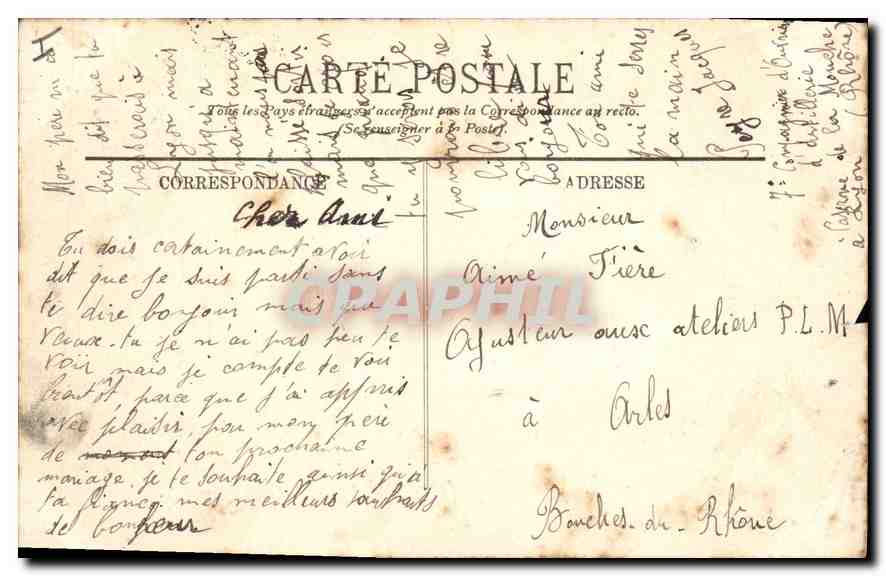 CARTE POSTALE
Tous les Pays étrangers n'acceptent pas la Correspondance au recto.
(Se renseigner à la Poste).
CORRESPONDANCE
ADRESSE
Cher Ami
Tu dois certainement avoir
dit que je suis parti sans
te dire bonjour mais que
veux-tu je n'ai pas peu te
voir mais je compte te voir
bientôt, parce que j'ai appris
avec plaisir, par mon péré
de ton prochaine
mariage. je te souhaite ainsi qu'à
ta fiancé mes meilleurs souhaits
de bonheur
Mon péré m'a
bien dit que tu
passerais à
Lyon mais
jusqu'à
maintenant
mais
que
tu
bonjour
Ton ami
qui te serre
la main
7e Compagnie d'Ouvriers
d'artillerie
Caserne de la Mouche
à Lyon (Rhône)
Monsieur
Aimé Fière
Ajusteur aux ateliers P.L.M
à Arles
Bouches-du-Rhône
CPAPHIL